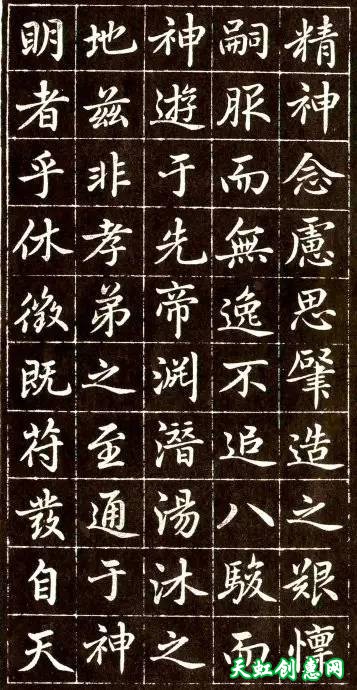 精神念慮思肇造之艱懍
嗣服而無逸不追八駿而
神遊于先帝渊潛湯沐之
地茲非孝弟之至通于神
明者乎休徵既苻發自天
天虹创意网